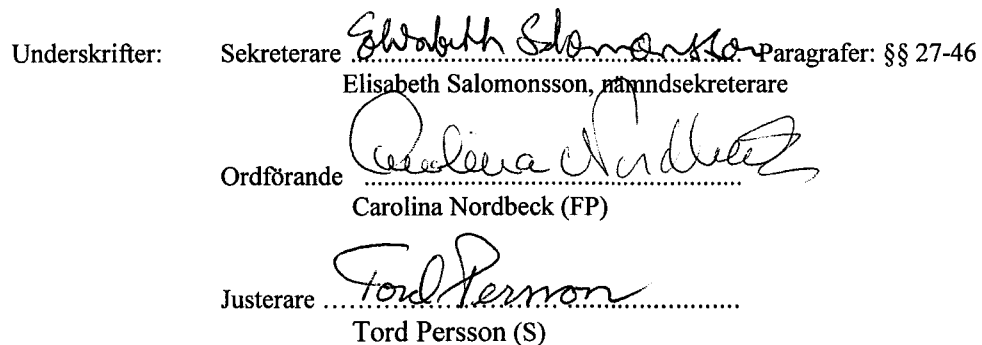 Underskrifter: Sekreterare Elisabeth Salomonsson Paragrafer: §§ 27-46
Elisabeth Salomonsson, nämndsekreterare
Ordförande Carolina Nordbeck
Carolina Nordbeck (FP)
Justerare Tord Persson
Tord Persson (S)